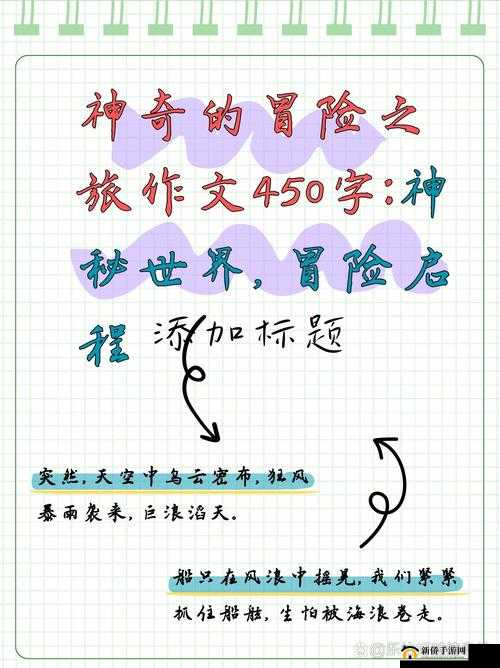 神奇的冒险之
旅作文450字:神
秘世界,冒险启
程 添加标题
突然,天空中乌云密布,狂风
暴雨袭来,巨浪滔天。
船只在风浪中摇晃,我们紧紧
抓住船舷,生怕被海浪卷走。
新侨手游网